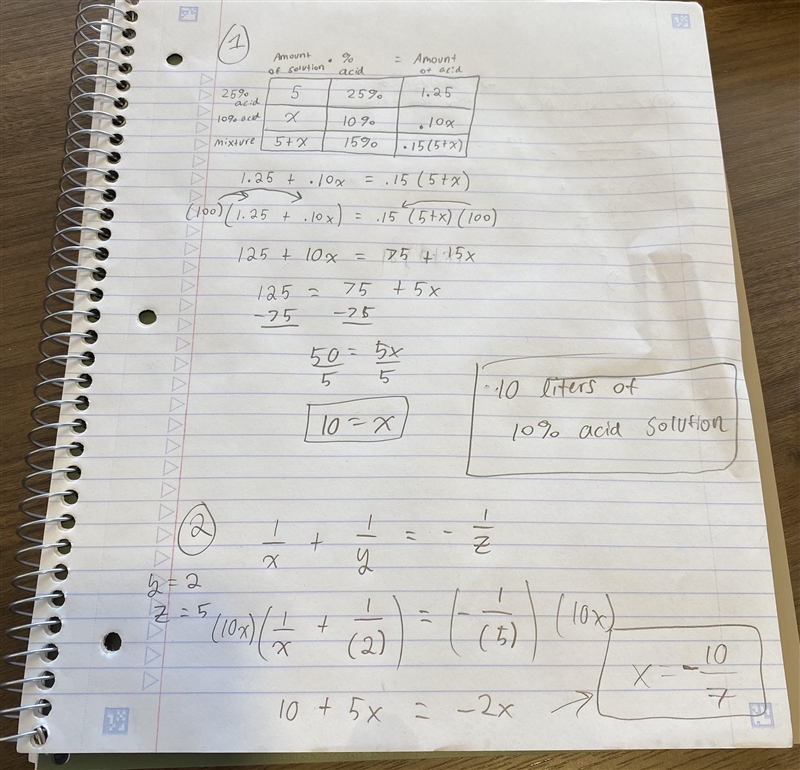 1
Amount of solution • % acid = Amount of acid
25% acid 5 25% 1.25
10% acid x 10% .10x
mixture 5+x 15% .15(5+x)
1.25 + .10x = .15 (5+x)
(100)(1.25 + .10x) = .15 (5+x)(100)
125 + 10x = 75 + 15x
125 = 75 + 5x
-75 -75
50/5 = 5x/5
10 = x
10 liters of
10% acid solution
2
1/x + 1/y = - 1/z
y = 2
z = 5
(10x)(1/x + 1/(2)) = (- 1/(5)) (10x)
10 + 5x = -2x → x = - 10/7